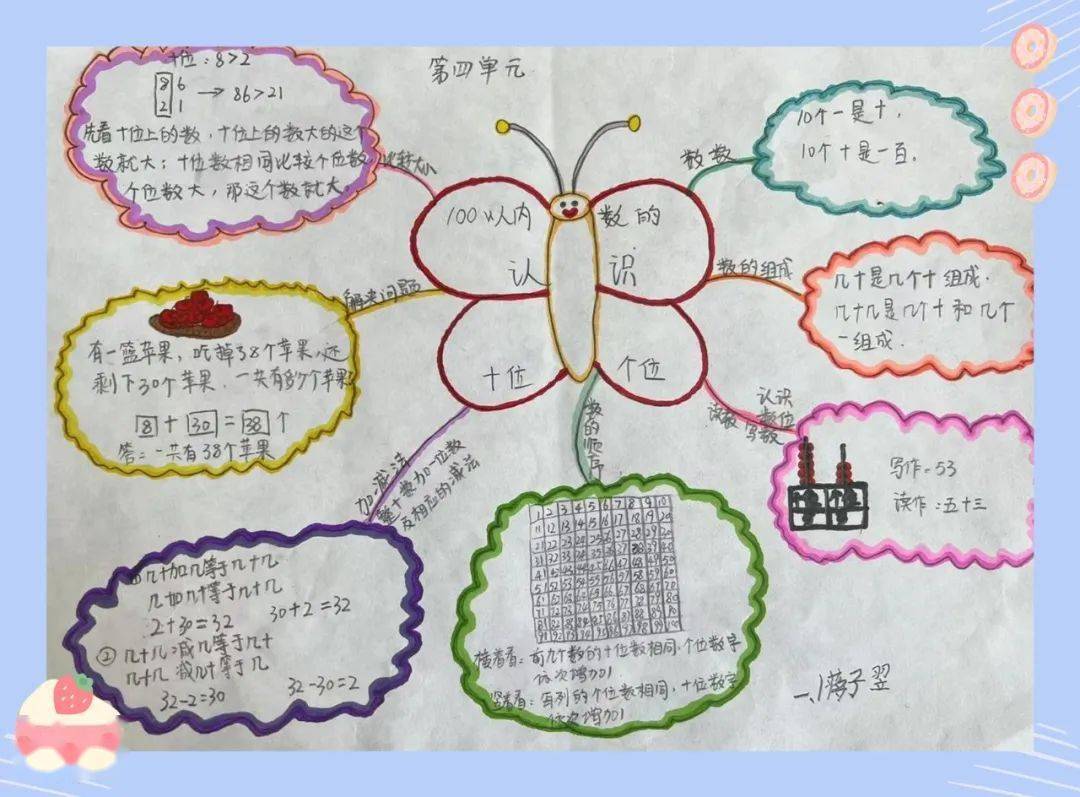 第四单元
十位：8>2
8 6
2 1 → 86>21
先看十位上的数，十位上的数大的这个
数就大；十位数相同比较个位数，
个位数大，那这个数就大。
比较大小
100以内 数的
认 识
十位 个位
数数
10个一是十，
10个十是一百。
数的组成
几十是几个十组成.
几十几是几个十和几个
一组成.
认识
数位
读数 写数
写作：53
读作：五十三
解决问题
有一篮苹果，吃掉38个苹果，还
剩下30个苹果，一共有多少个苹果
8 + 30 = 38 个
答：一共有38个苹果
加减法
整十数加一位数
及相应的减法
①几十加几等于几十几
几加几十等于几十几
2+30=32 30+2=32
② 几十几减几等于几十
几十几减几十等于几
32-2=30 32-30=2
数的顺序
1 2 3 4 5 6 7 8 9 10
11 12 13 14 15 16 17 18 19 20
横着看：前几个数的十位数相同，个位数字
依次增加1
竖着看：每列的个位数相同，十位数字
依次增加1